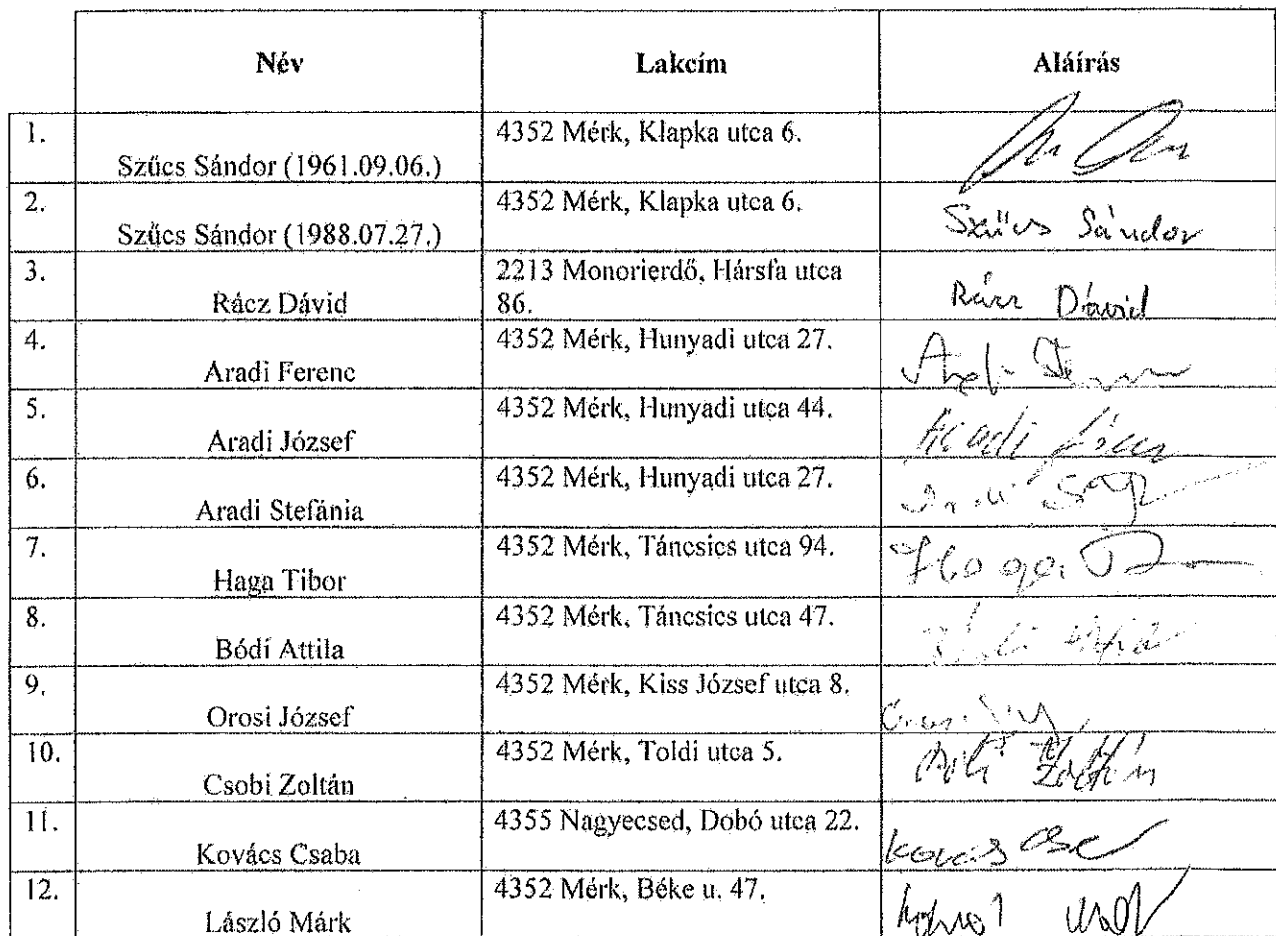 Név Lakcím Aláírás
1. Szűcs Sándor (1961.09.06.) 4352 Mérk, Klapka utca 6.
2. Szűcs Sándor (1988.07.27.) 4352 Mérk, Klapka utca 6. Szűcs Sándor
3. Rácz Dávid 2213 Monorierdő, Hársfa utca
86. Rácz Dávid
4. Aradi Ferenc 4352 Mérk, Hunyadi utca 27.
5. Aradi József 4352 Mérk, Hunyadi utca 44. Aradi
6. Aradi Stefánia 4352 Mérk, Hunyadi utca 27.
7. Haga Tibor 4352 Mérk, Táncsics utca 94. Haga
8. Bódi Attila 4352 Mérk, Táncsics utca 47.
9. Orosi József 4352 Mérk, Kiss József utca 8.
10. Csobi Zoltán 4352 Mérk, Toldi utca 5. Zoltán
11. Kovács Csaba 4355 Nagyecsed, Dobó utca 22. Kovács
12. László Márk 4352 Mérk, Béke u. 47.